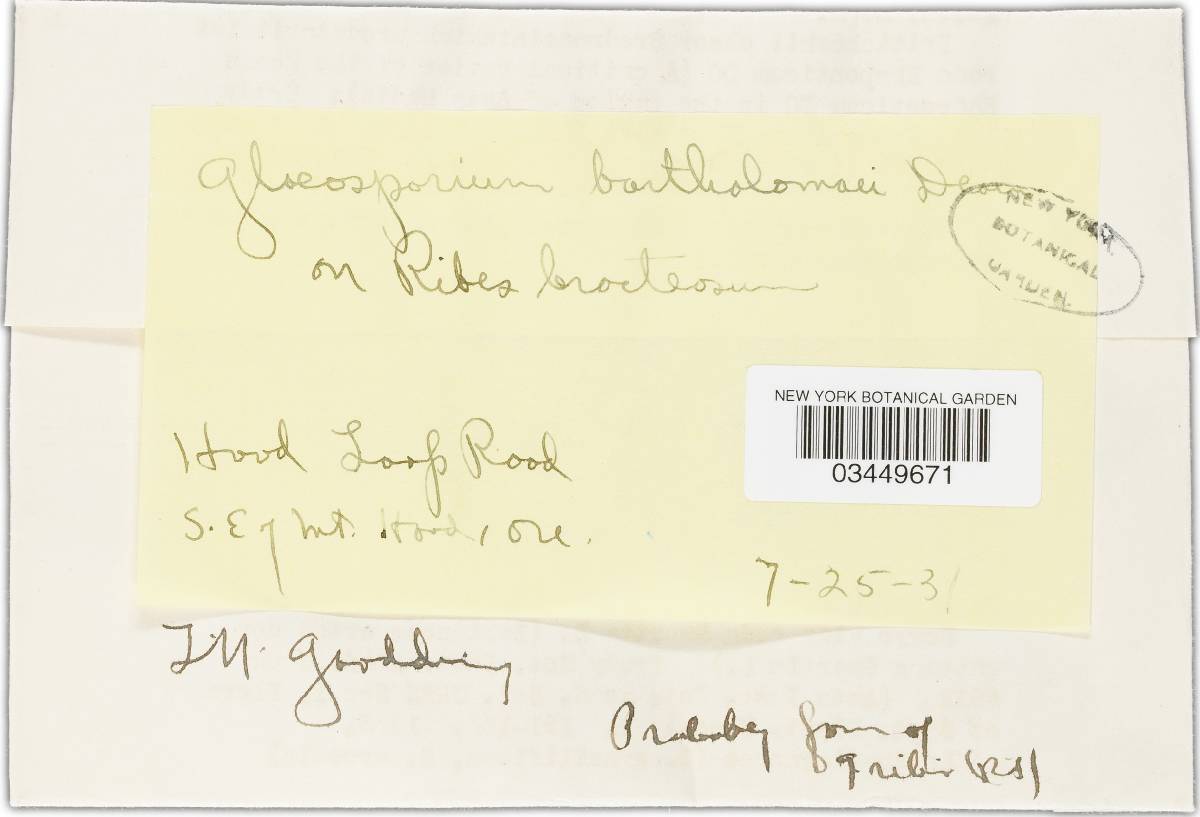 Gloeosporium bartholomaei Dearn
on Ribes bracteosum
NEW YORK
BOTANICAL
GARDEN.
NEW YORK BOTANICAL GARDEN
03449671
Hood Loop Road
S. E of Mt. Hood, Ore.
7-25-31
L.N. Goodding
Probably form of
G ribis (RS)